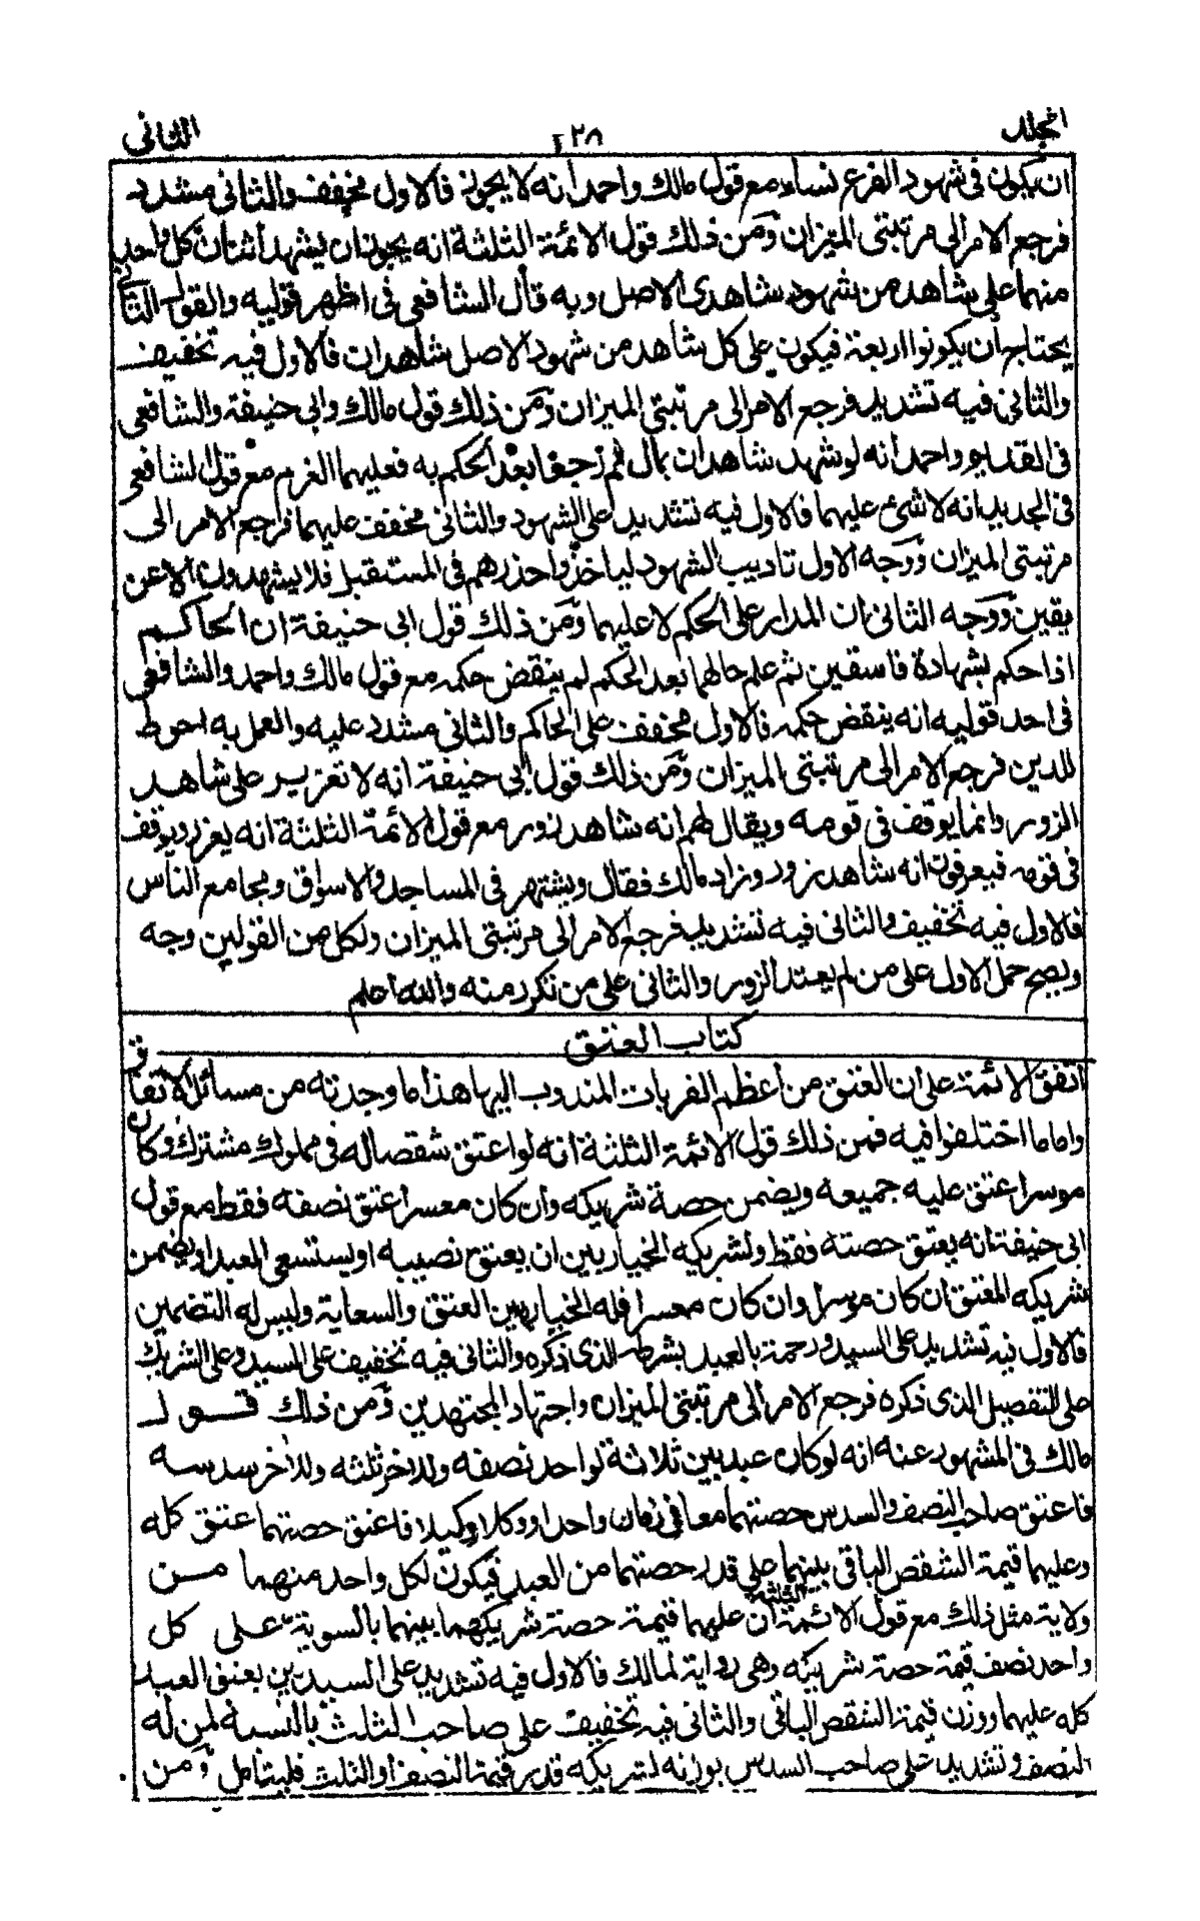 المجلد
٢٨
الثانى
ان يكون فى شهود الفرع نساء مع قول مالك واحمد انه لا يجوز فالاول مخفف والثانى مشدد
فرجع الامر الى مرتبتى الميزان ومن ذلك قول الائمة الثلثة انه يجوز ان يشهد اثنان كل واحد
منهما على شاهد من شهود شاهدى الاصل وبه قال الشافعى فى اظهر قوليه والقول الثانى
يحتاج ان يكونوا اربعة فيكون على كل شاهد من شهود الاصل شاهدان فالاول فيه تخفيف
والثانى فيه تشديد فرجع الامر الى مرتبتى الميزان ومن ذلك قول مالك وابى حنيفة والشافعى
فى القديم واحمد انه لو شهد شاهدان بمال ثم رجعا بعد الحكم به فعليهما الغرم مع قول الشافعى
فى الجديد انه لا شئ عليهما فالاول فيه تشديد على الشهود والثانى مخفف عليهما فراجع الامر الى
مرتبتى الميزان ووجه الاول تاديب الشهود لياخذوا حذرهم فى المستقبل فلا يشهدون الا عن
يقين ووجه الثانى ان المدار على الحكم لا عليهما ومن ذلك قول ابى حنيفة ان الحاكم
اذا حكم بشهادة فاسقين ثم علم حالهما بعد الحكم لم ينقض حكمه مع قول مالك واحمد والشافعى
فى احد قوليه انه ينقض حكمه فالاول مخفف على الحاكم والثانى مشدد عليه والعمل به احوط
للدين فرجع الامر الى مرتبتى الميزان ومن ذلك قول ابى حنيفة انه لا تعزير على شاهد
الزور وانما يوقف فى قومه ويقال لهم انه شاهد زور مع قول الائمة الثلثة انه يعزر ويوقف
فى قومه فيعرفون انه شاهد زور وزاد مالك فقال ويشتهر فى المساجد والاسواق ومجامع الناس
فالاول فيه تخفيف والثانى فيه تشديد فرجع الامر الى مرتبتى الميزان ولكل من القولين وجه
ويصح حمل الاول على من لم يعتد الزور والثانى على من تكرر منه والله اعلم
كتاب العتق
اتفق الائمة على ان العتق من اعظم القربات المندوب اليها هذا ما وجدته من مسائل الاتفاق
واما ما اختلفوا فيه فمن ذلك قول الائمة الثلثة انه لو اعتق شقصا له فى مملوك مشترك وكان
موسرا عتق عليه جميعه ويضمن حصة شريكه وان كان معسرا عتق نصفه فقط مع قول
ابى حنيفة انه يعتق حصته فقط ولشريكه الخيار بين ان يعتق نصيبه او يستسعى العبد او يضمن
شريكه المعتق ان كان موسرا وان كان معسرا فله الخيار بين العتق والسعاية وليس له التضمين
فالاول فيه تشديد على السيد ورحمة بالعبد بشرطه الذى ذكره والثانى فيه تخفيف على السيد وعلى الشريك
على التفصيل الذى ذكره فرجع الامر الى مرتبتى الميزان واجتهاد المجتهدين ومن ذلك قول
مالك فى المشهور عنه انه لو كان عبد بين ثلاثة لواحد نصفه ولاخر ثلثه ولاخر سدسه
فاعتق صاحب النصف والسدس حصتهما معا فى زمان واحد او وكلا وكيلا فاعتق حصتهما عتق كله
وعليهما قيمة الشقص الباقى بينهما على قدر حصتهما من العبد فيكون لكل واحد منهما من
ولاية مثل ذلك مع قول الائمة الثلثة ان عليهما قيمة حصة شريكهما بينهما بالسوية على كل
واحد نصف قيمة حصة شريكه وهى رواية لمالك فالاول فيه تشديد على السيدين بعتق العبد
كله عليهما ووزن قيمة الشقص الباقى والثانى فيه تخفيف على صاحب الثلث بالنسبة لمن له
النصف وتشديد على صاحب السدس بوزنه لشريكه قدر قيمة النصف او الثلث فليتامل ومن